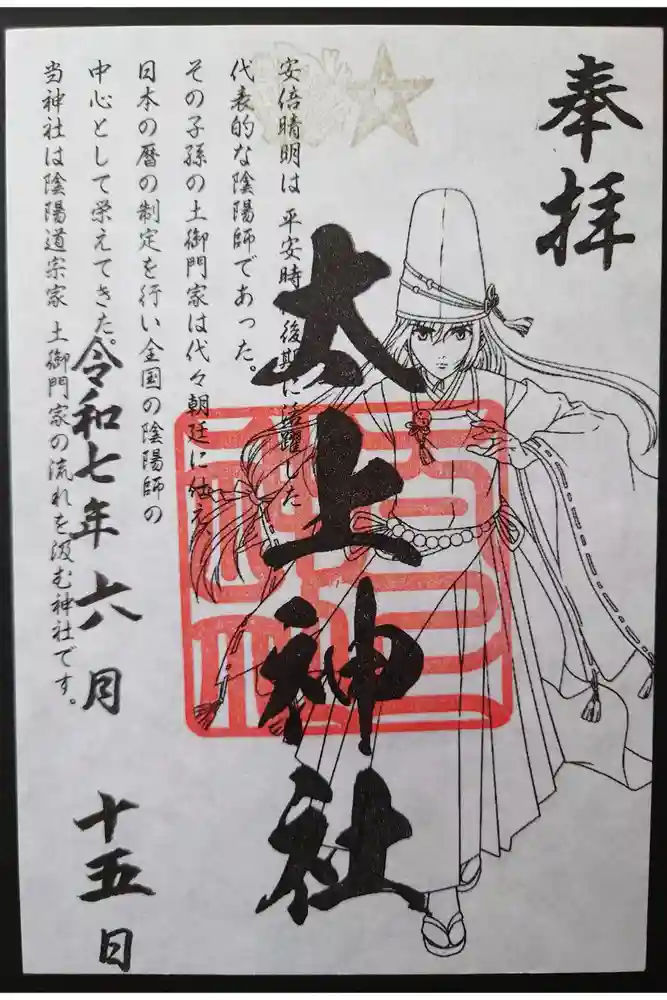 奉拝
安倍晴明は 平安時代後期に活躍した
代表的な陰陽師であった。
その子孫の土御門家は代々朝廷に仕え
日本の暦の制定を行い全国の陰陽師の
中心として栄えてきた。
当神社は陰陽道宗家 土御門家の流れを汲む神社です。
太上神社
令和七年六月 十五日